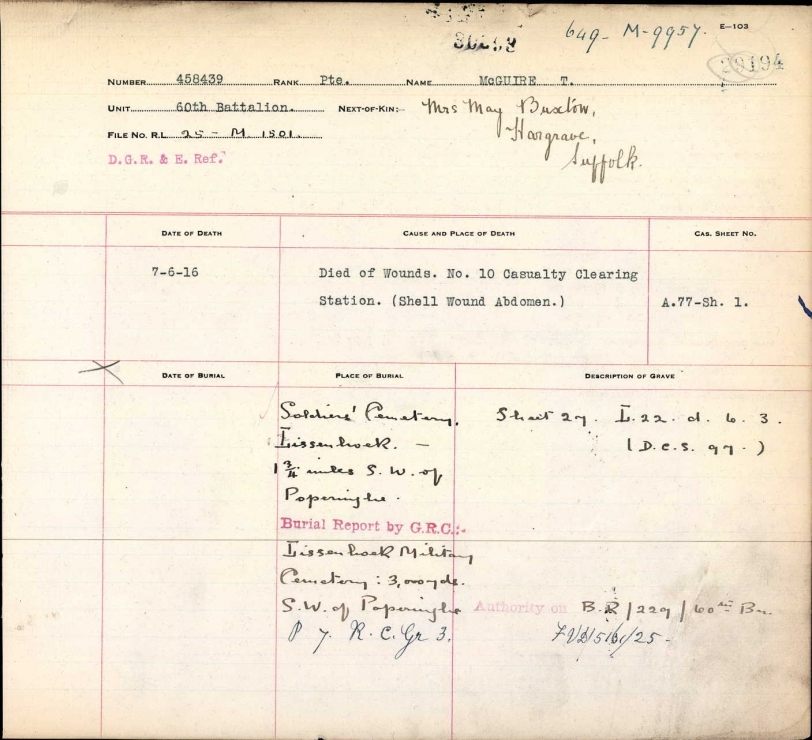 649- M-9957. E-103
29194
NUMBER 458439 RANK Pte. NAME McGUIRE T.
UNIT 60th Battalion. NEXT-OF-KIN:- Mrs May Buxton,
Hargrave,
Suffolk.
FILE NO. R.L. 25 - M. 1501.
D.G.R. & E. Ref.
DATE OF DEATH CAUSE AND PLACE OF DEATH CAS. SHEET NO.
7-6-16 Died of Wounds. No. 10 Casualty Clearing
Station. (Shell Wound Abdomen.) A.77-Sh. 1.
DATE OF BURIAL PLACE OF BURIAL DESCRIPTION OF GRAVE
Soldiers' Cemetery, Sheet 27. L. 22. d. 6. 3.
Lissenhoek. - (D.C.S. 97.)
1 3/4 miles S.W. of
Poperinghe.
Burial Report by G.R.C.:-
Lissenhoek Military
Cemetery: 3,000yds.
S.W. of Poperinghe Authority on B.R/229/60th Bn.
P 7. R. C. Gr 3.